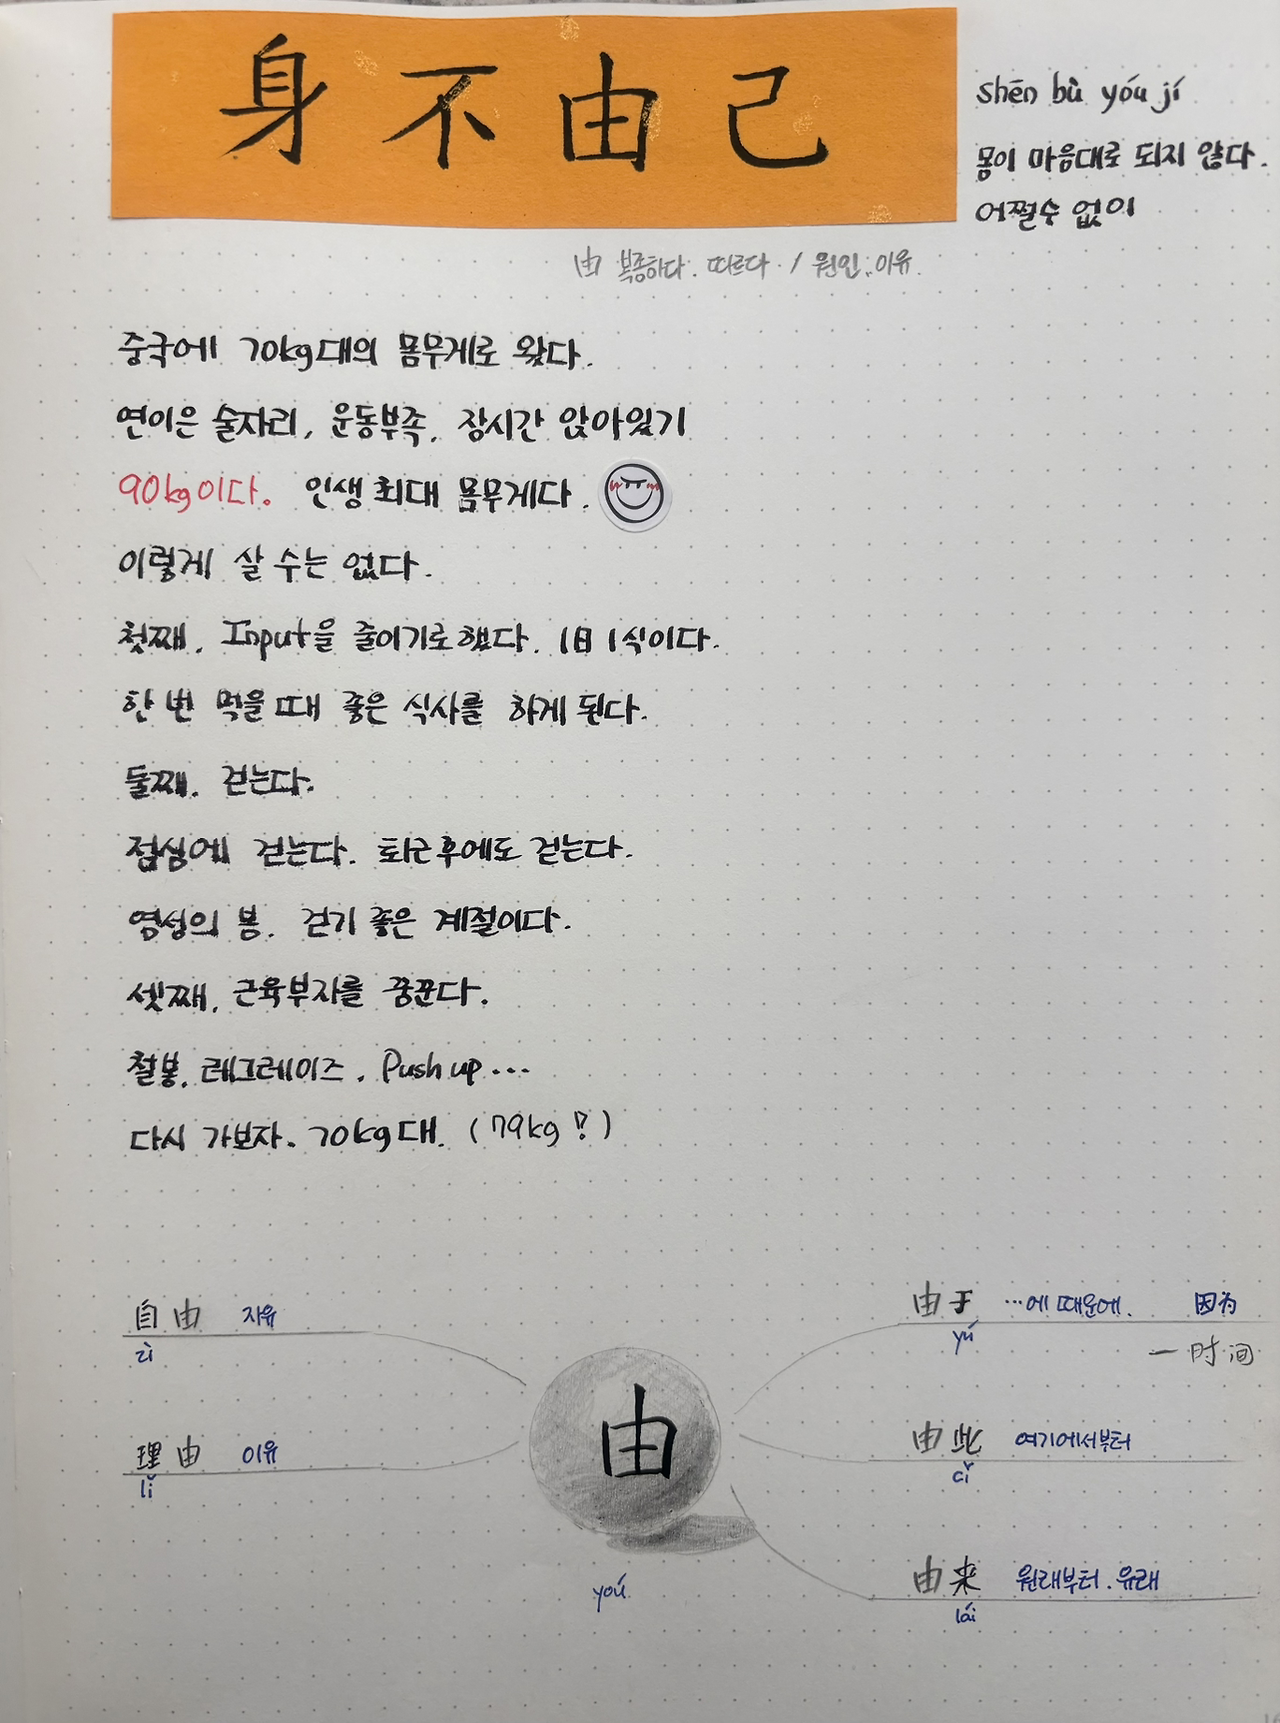 身不由己
shēn bù yóu jí
몸이 마음대로 되지 않다.
어쩔수 없이
由 복종하다. 따르다. / 원인, 이유.
중국에 70kg대의 몸무게로 왔다.
연이은 술자리, 운동부족, 장시간 앉아있기
90kg이다. 인생 최대 몸무게다.
이렇게 살 수는 없다.
첫째, Input을 줄이기로 했다. 1日 1식이다.
한 번 먹을 때 좋은 식사를 하게 된다.
둘째, 걷는다.
점심에 걷는다. 퇴근후에도 걷는다.
염성의 봄. 걷기 좋은 계절이다.
셋째, 근육부자를 꿈꾼다.
철봉, 레그레이즈, Push up...
다시 가보자. 70kg대. (79kg!?)
自由 자유
zì
理由 이유
lǐ
由
yóu
由于 ...에 때문에. 因为
yú
一时间
由此 여기에서부터
cǐ
由来 원래부터. 유래
lái